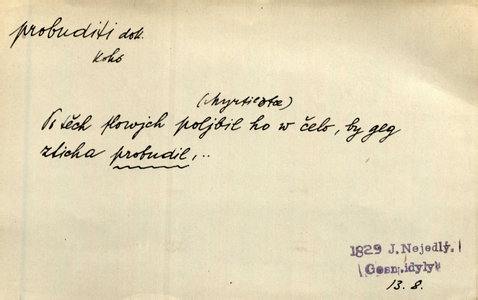 probuditi dok.
koho
Po těch slowjch poljbil ho w čelo, by geg
zticha probudil,..
1829 J. Nejedlý.
Gesn. idyly
13. 8.